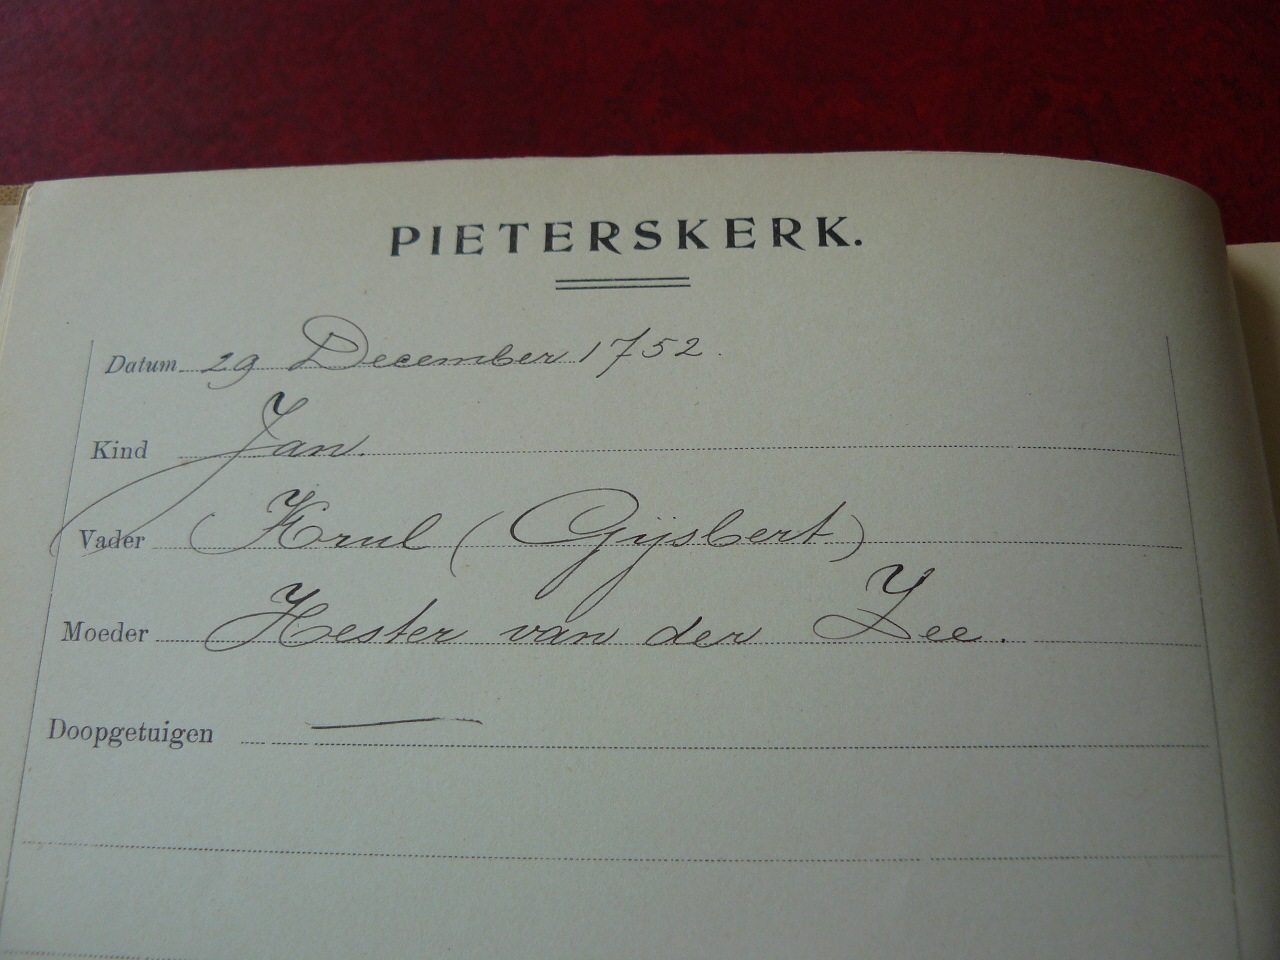 PIETERSKERK.
Datum 29 December 1752.
Kind Jan.
Vader Krul (Gijsbert)
Moeder Hester van der Zee.
Doopgetuigen —